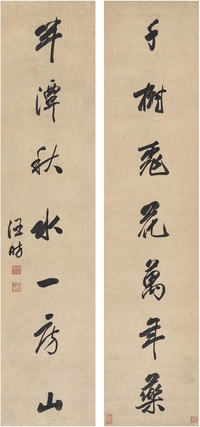 千樹花萬年藥
半潭秋水一房山
汪昉